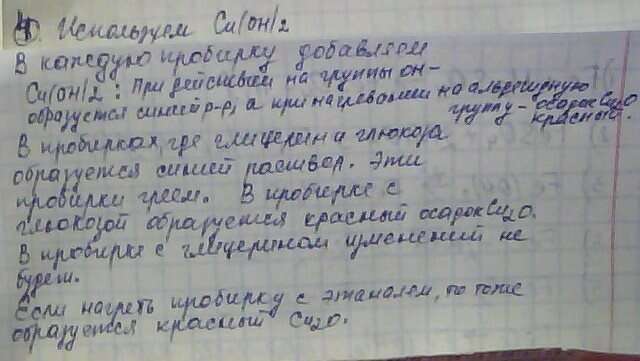 4). Используем Cu(OH)2
В каждую пробирку добавляем
Cu(OH)2 : При действии на группы OH-
образуется синий р-р, а при нагревании на альдегидную
группу - осадок Cu2O
красный.
В пробирках, где глицерин и глюкоза
образуется синий раствор. Эти
пробирки греем. В пробирке с
глюкозой образуется красный осадок Cu2O.
В пробирке с глицерином изменений не
будет.
Если нагреть пробирку с этаналем, то тоже
образуется красный Cu2O.